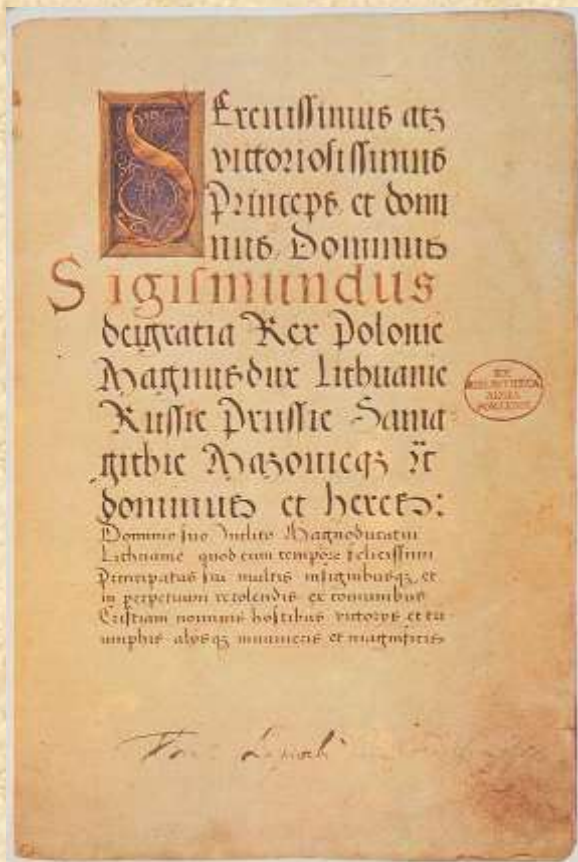 SErenissimus atq3
victoriosissimus
Princeps et domi
nus Dominus
Sigismundus
dei gratia Rex Polonie
Magnus dux Lithuanie
Russie Prussie Sama
githie Mazovieq3 ꝛc
dominus et heres:
Dominio suo Inclito Magnoducatui
Lithuanie quod eum tempore felicissimi
Principatus sui multis insignibusq3 et
in perpetuum recolendis ex comunibus
Cristiani nominis hostibus victoriis et tri
umphis aliisq3 innumeris et magnificis
EX
BIBLIOTHECA